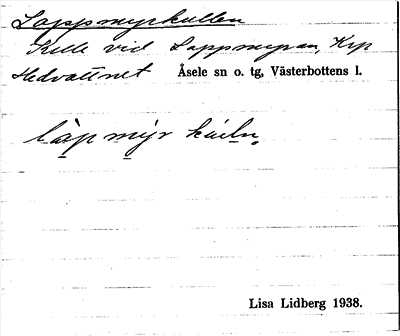 Lappmyrkullen
Kulle vid Lappmyran, Krp
Hedvattnet Åsele sn o. tg, Västerbottens l.
làp mỳr kúln.
Lisa Lidberg 1938.